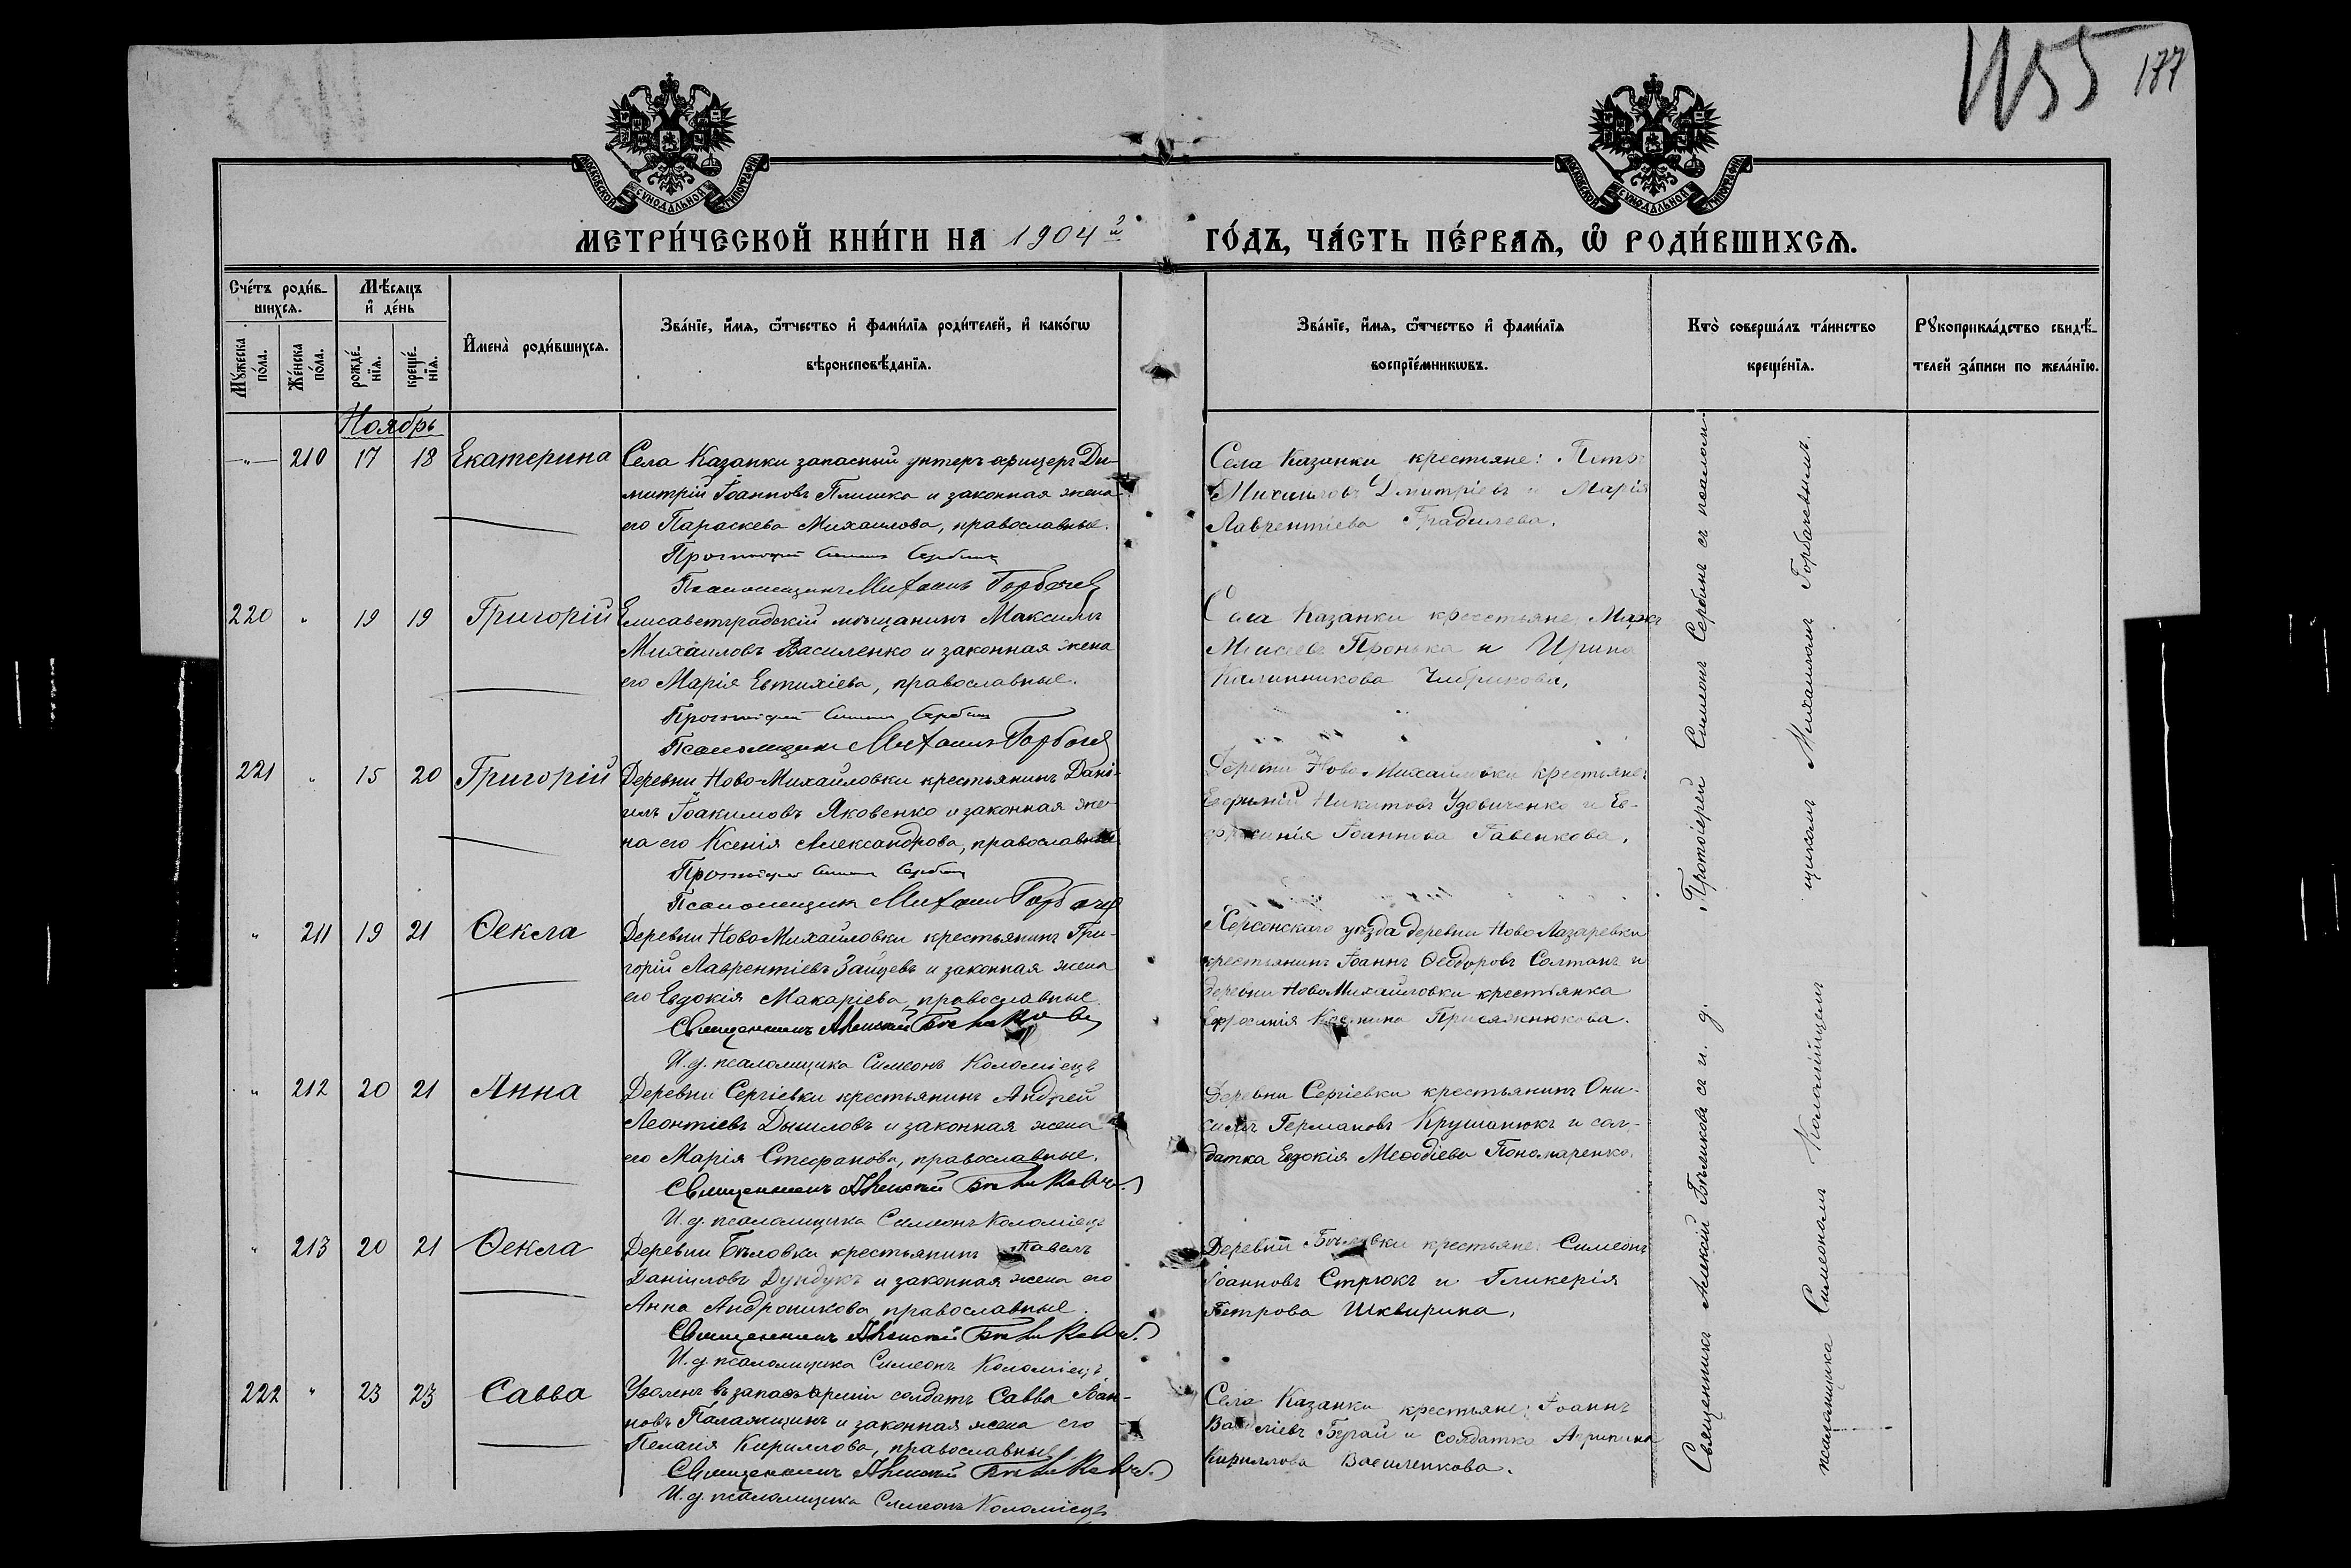 1155 177
МОСКОВСКОЙ СѴНОДАЛЬНОЙ ТИПОГРАФІИ
МОСКОВСКОЙ СѴНОДАЛЬНОЙ ТИПОГРАФІИ
МЕТРИ́ЧЕСКОЙ КНИ́ГИ НА 1904й ГО́ДЪ, ЧА́СТЬ ПЕ́РВАѦ, Ѡ҆ РОДИ́ВШИХСѦ.
Сче́тъ роди́в-
шихсѧ.
Мꙋ́жеска по́ла.
Же́нска по́ла.
Мѣ́сѧцъ
и҆ де́нь
рожде́-
нїѧ.
креще́-
нїѧ.
И҆мена̀ роди́вшихсѧ.
Зва́нїе, и҆́мѧ, ѻ҆́тчество и҆ фами́лїѧ роди́телей, и҆ како́гѡ
вѣроисповѣ́данїѧ.
Зва́нїе, и҆́мѧ, ѻ҆́тчество и҆ фами́лїѧ
воспрїе́мникѡвъ.
Кто̀ соверша́лъ та́инство
креще́нїѧ.
Рꙋкоприкла́дство свидѣ́-
телей за́писи по жела́нїю.
Ноябрь
-"- 210 17 18 Екатерина
Села Казанки запасный унтеръ-офицеръ Ди-
митрій Іоанновъ Плишка и законная жена
его Параскева Михаилова, православные.
Протоіерей Симеонъ Сербинъ
Псаломщикъ Михаилъ Горбачев
Села Казанки крестьяне: Петръ
Михаиловъ Дмитріевъ и Марія
Лаврентіева Градилева.
220 " 19 19 Григорій
Елисаветградскій мѣщанинъ Максимъ
Михаиловъ Василенко и законная жена
его Марія Евтихіева, православные.
Протоіерей Симеонъ Сербинъ
Псаломщикъ Михаилъ Горбачев
Села Казанки крестьяне: Марко
Моисеевъ Пронька и Ирина
Калинникова
221 " 15 20 Григорій
Деревни Ново-Михайловки крестьянинъ Дані-
илъ Іоакимовъ Яковенко и законная же-
на его Ксенія Александрова, православные
Протоіерей Симеонъ Сербинъ
Псаломщикъ Михаилъ Горбачев
Деревни Ново-Михайловки крестьяне:
Евфимій Никитовъ Удовиченко и Ев-
фросинія Іоаннова Гавенкова.
" 211 19 21 Ѳекла
Деревни НовоМихайловки крестьянинъ Гри-
горій Лаврентіевъ Зайцевъ и законная жена
его Евдокія Макаріева, православные.
Священникъ Алексій Бѣликовъ
И.д. псаломщика Симеонъ Коломіецъ
Херсонскаго уѣзда деревни НовоЛазаревки
крестьянинъ Іоаннъ Ѳеодоровъ Солтанъ и
деревни НовоМихайловки крестьянка
Ефросинія Космина Присяжнюкова.
" 212 20 21 Анна
Деревни Сергіевки крестьянинъ Андрей
Леонтіевъ Дышловъ и законная жена
его Марія Стефанова, православные.
Священникъ Алексій Бѣликовъ.
И.д. псаломщика Симеонъ Коломіецъ
Деревни Сергіевки крестьянинъ Они-
симъ Германовъ Крушанюкъ и сол-
датка Евдокія Меѳодіева Пономаренко.
" 213 20 21 Ѳекла
Деревни Бѣловки крестьянинъ Павелъ
Даніиловъ Дундукъ и законная жена его
Анна Андроникова, православные.
Священникъ Алексій Бѣликовъ.
И.д. псаломщика Симеонъ Коломіецъ
Деревни Бѣловки крестьяне: Симеонъ
Іоанновъ Стрюкъ и Гликерія
Петрова Шквирина.
222 " 23 23 Савва
Уволенъ въ запасъ арміи солдатъ Савва Іоан-
новъ Паламщинъ и законная жена его
Пелагія Кириллова, православные
Священникъ Алексій Бѣликовъ.
И.д. псаломщика Симеонъ Коломіецъ
Села Казанки крестьяне: Іоаннъ
Василіевъ Бугай и солдатка Агрипина
Кириллова Василенкова.
Протоіерей Симеонъ Сербинъ съ псалом-
щикомъ Михаиломъ Горбачевымъ.
Священникъ Алексій Бѣликовъ съ и. д.
псаломщика Симеономъ Коломійцемъ